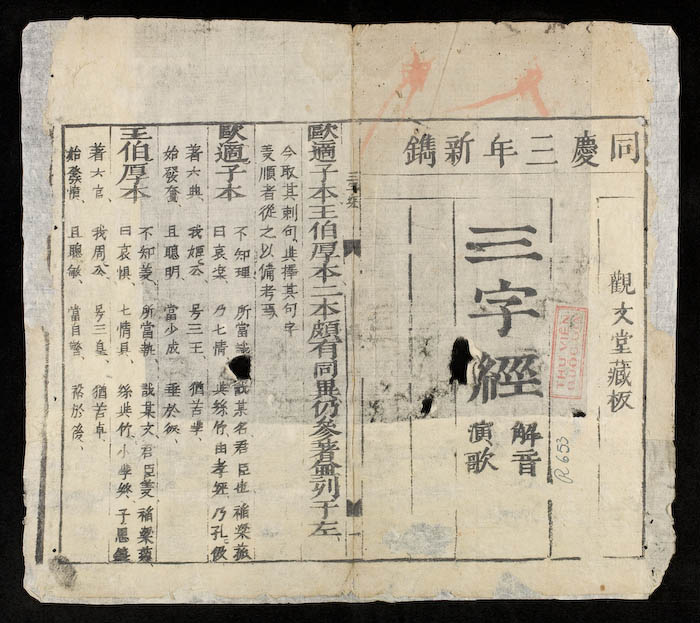 同慶三年新鐫
觀文堂藏板
三字經
解音
演歌
R.653
歐適子本王伯厚本二本頗有同異仍參著並列于左
今取其刺句並擇其句字
義順者從之以備考焉
歐適子本
不知理 所當識 某名 君臣也 稻粱菽
曰哀樂 乃七情 與絲竹 由孝經 乃孔伋
著六典 我姬公 号三王 猶苦學
始發奮 且聰明 當少成 垂於後
王伯厚本
不知義 所當執 某文 君臣義 稻粱菽
曰哀惧 七情具 絲與竹 小學終 子思
著六官 我周公 号三皇 猶苦卓
始發憤 且聰敏 當自警 裕於後